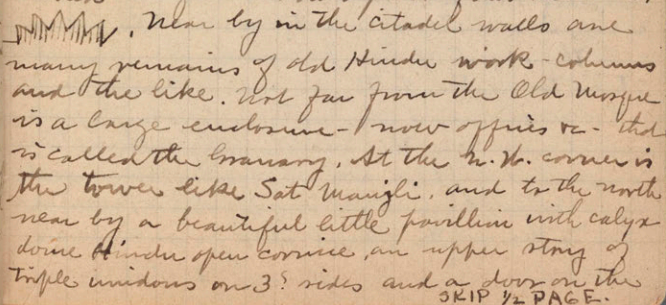 . Near by in the citadel walls are
many remains of old Hindu work - columns
and the like. Not far from the Old Mosque
is a large enclosure - now offices &c - that
is called the Granary. At the N.W. corner is
the tower like Sat Manzli, and to the north
near by a beautiful little pavillion with calyx
dome Hindu open cornice, an upper story of
triple windows on 3? sides and a door on the
SKIP 1/2 PAGE.